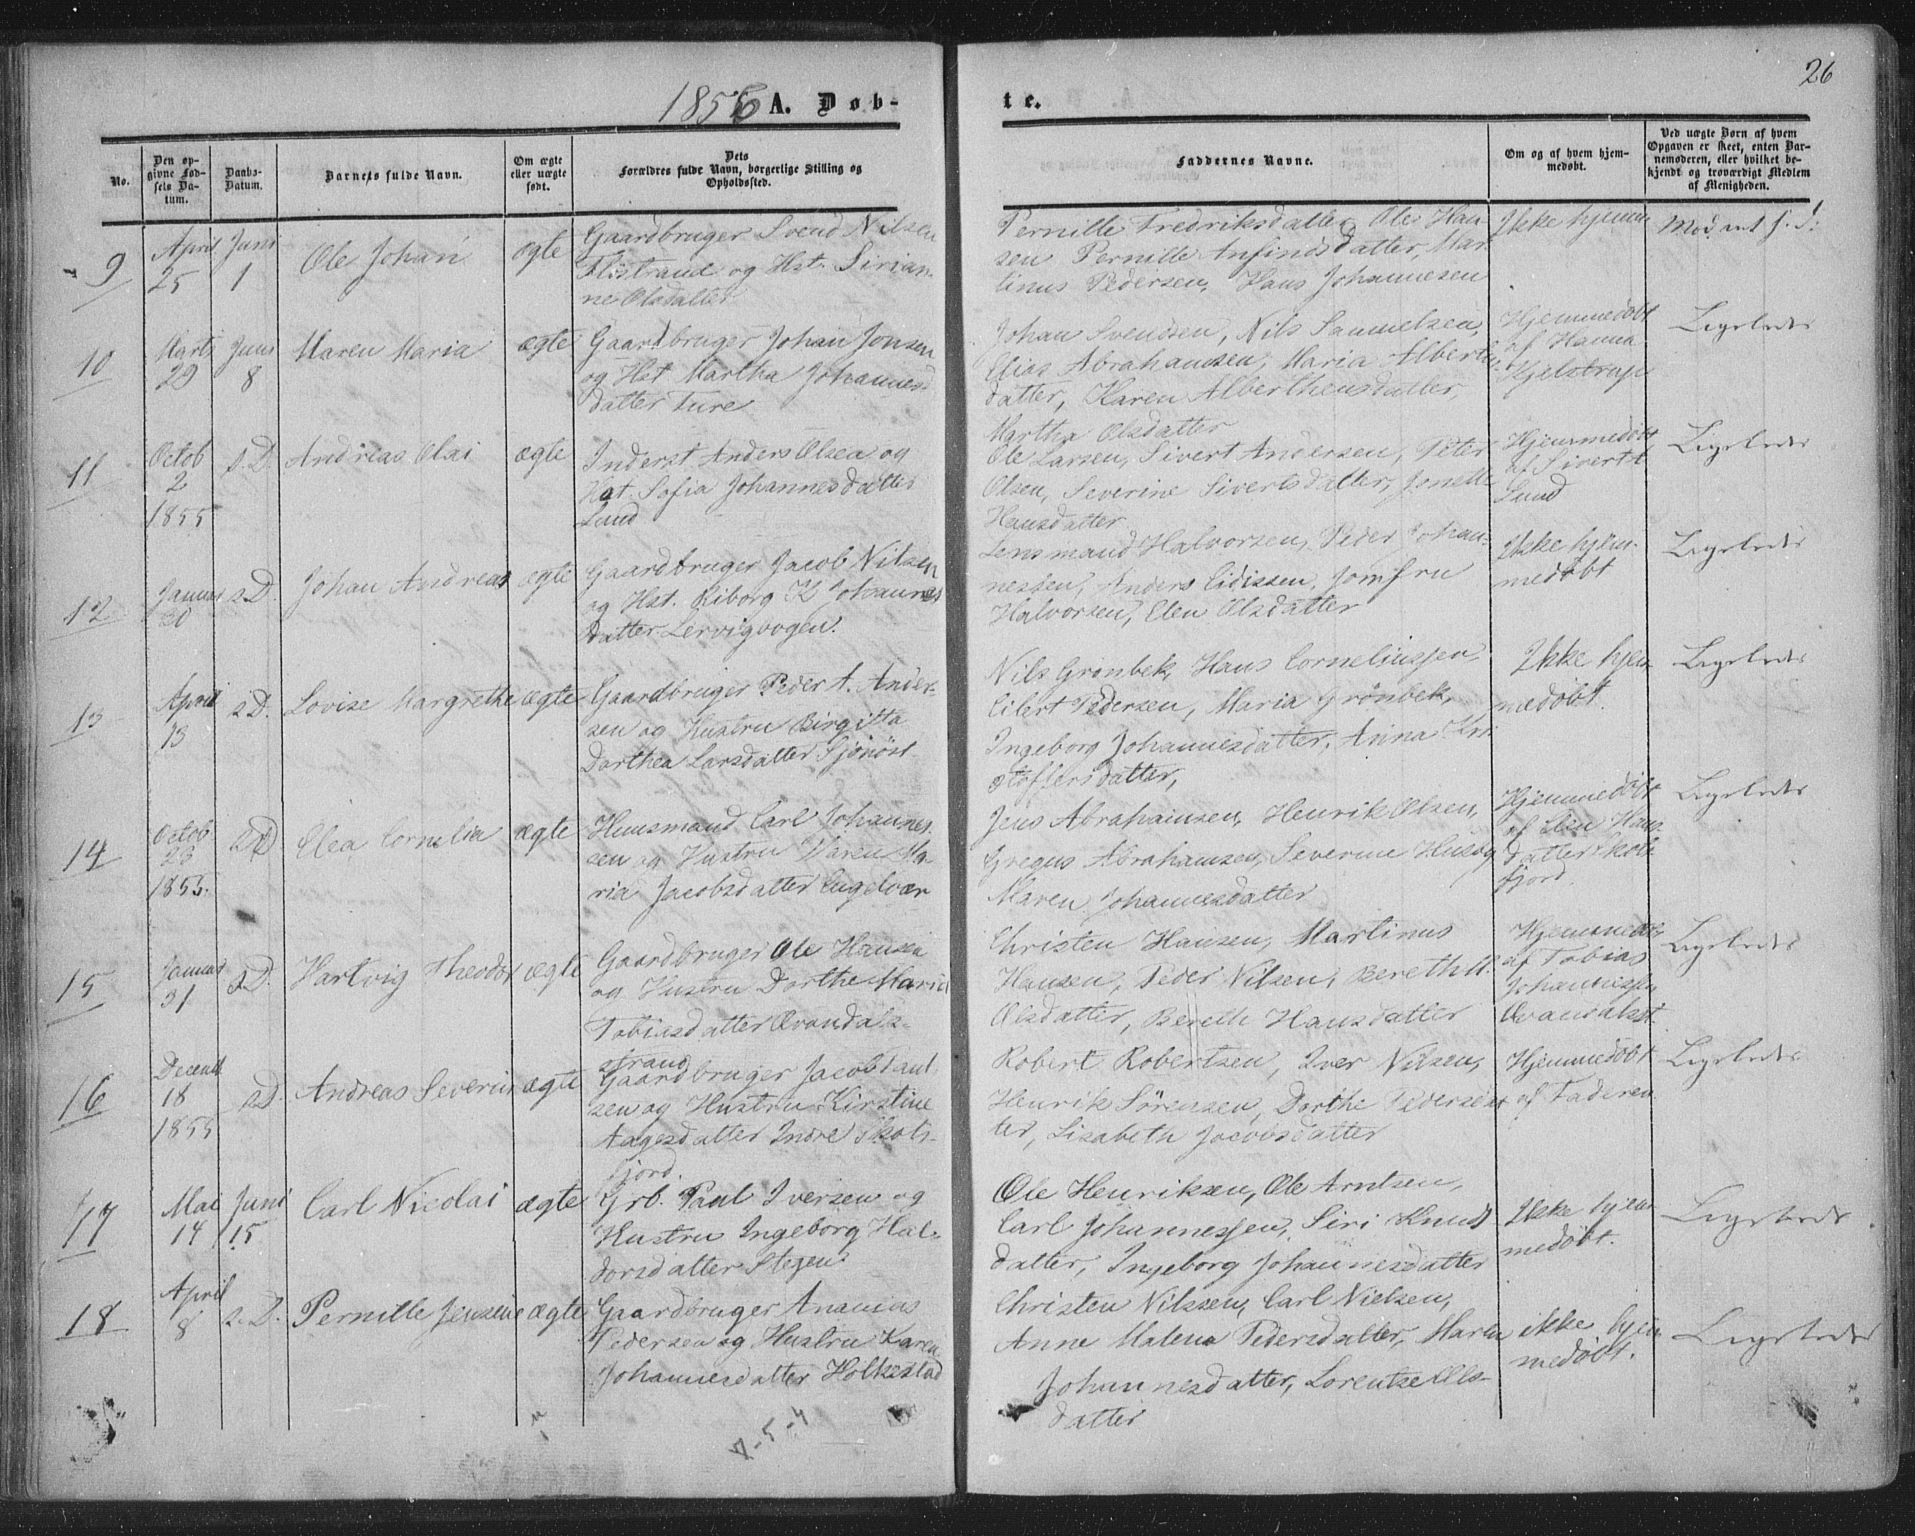 26
1856 A. Døb-
te.
No.
Den op-
givne Fød-
sels Da-
tum.
Daabs-
Datum.
Barnets fulde Navn.
Om ægte
eller uægte
født.
Dets
Forældres fulde Navn, borgerlige Stilling og
Opholdssted.
Faddernes Navne.
Om og af hvem hjem-
medøbt.
Ved uægte Børn af hvem
Opgaven er skeet, enten Bar-
nemoderen, eller hvilket be-
kjendt og troværdigt Medlem
af Menigheden.
9
April
25
Juni
1
Ole Johan
ægte
Gaardbruger Svend Nilsen
Flostrand og Hst. Sirian-
ne Olsdatter
Pernille Fredriksdatter, Ole Han-
sen Pernille Anfindsdatter, Mar-
tinus Pedersen, Hans Johannesen
Ikke hjem
10
Marts
29
Juni
8
Maren Maria
ægte
Gaardbruger Johan Jonsen
og Hst Martha Johannesd
datter Ture
Johan Svendsen, Nils Samuelsen,
Elias Abrahamsen, Maria Alberts
datter, Karen Alberthensdatter,
Martha Olsdatter
Hjemmedøbt
af Hanna
Kjelstrup
Ligeledes
11
Octob
2
1855
s. D.
Andreas Olai
ægte
Inderst Anders Olsen og
Hst. Sofia Johannesdatter
Lund
Ole Larsen, Sivert Andersen, Peter
Olsen, Severine Sivertsdatter, Jonette
Hansdatter
Hjemmedøbt
af Sivert
Lund
Ligeledes
12
Januar
20
s D.
Johan Andreas
ægte
Gaardbruger Jacob Nilsen
og Hst. Riborg K Johannes
datter Lervigvogen.
Lensmand Halvorsen, Peder Johan-
nessen, Anders Eidissen, Jomfru
Halvorsen, Elen Olsdatter
Ikke hjem-
medøbt
Ligeledes
13
April
13
s D.
Lovise Margrethe
ægte
Gaardbruger Peder A. Ander-
sen og Hustru Birgitta
Dorthea Larsdatter Sjonöst
Nils Grønbek, Hans Corneliussen,
Eilert Pedersen, Maria Grønbek,
Ingeborg Johannesdatter, Anna Kri
stoffersdatter,
Ikke hjem
medøbt.
Ligeledes
14
Octob
23
1855.
s D
Elea Cornelia
ægte
Huusmand Carl Johannes
sen og Hustru Maren Ma-
ria Jacobsdatter Engelvær
Jens Abrahamsen, Henrik Olsen,
Gregus Abrahamsen, Severine Husby
Maren Johannesdatter
Hjemmedøbt
af Elen Hans
datter Skots
fjord
Ligeledes
15
Januar
31
s D.
Hartvig Theodor
ægte
Gaardbruger Ole Hansen
og Hustru Dorthe Maria
Tobiasdatter Qvandals-
strand
Christen Hansen, Martinus
Hansen, Peder Nilsen, Bereth M.
Olsdatter, Bereth Hansdatter
Hjemmedøbt
af Tobias
Johannessen
Qvandalst
Ligeledes
16
Decemb
18
1855
s D.
Andreas Severin
ægte
Gaardbruger Jacob Paul
sen og Hustru Kirstine
Aagesdatter Indre Skots-
fjord.
Robert Robertsen, Iver Nilsen,
Henrik Sørensen, Dorthe Pedersdat
ter, Lisabeth Jacobsdatter
Hjemmedøbt
af Faderen
Ligeledes
17
Mai
14
Juni
15
Carl Nicolai
ægte
Grb. Paul Iversen og
Hustru Ingeborg Hal-
dorsdatter Stegen
Ole Henriksen, Ole Arntsen,
Carl Johannessen, Siri Knuds
datter, Ingeborg Johannesdatter
Ikke hjem
medøbt.
Ligeledes
18
April
8
s. D.
Pernille Jensine
ægte
Gaardbruger Ananias
Pedersen og Hustru Karen
Johannesdatter Holkestad
Christen Nilssen, Carl Nielsen,
Anne Malena Pedersdatter, Maren
Johannesdatter, Lorentse Ols-
datter
ikke hjem
medøbt.
Ligeledes
7-5-4